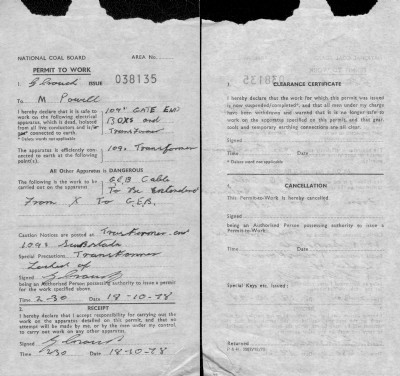 NATIONAL COAL BOARD AREA No.
PERMIT TO WORK
1. G Crouch ISSUE 038135
To M Powell
I hereby declare that it is safe to
work on the following electrical
apparatus, which is dead, isolated
from all live conductors and is/is
not* connected to earth.
* Delete words not applicable
109s GATE END
BOXS and
Transformer
The apparatus is efficiently con-
nected to earth at the following
point(s).
109s Transformer
All Other Apparatus is DANGEROUS
The following is the work to be
carried out on the apparatus.
G.E.B Cable
To Be Extended
From X To G.E.B.
Caution Notices are posted at Transformer and
109s
Special Precautions Transformer
Locked off
Signed G Crouch
being an Authorised Person possessing authority to issue a permit
for the work specified above.
Time 2-30 Date 18-10-78
2. RECEIPT
I hereby declare that I accept responsibility for carrying out the
work on the apparatus detailed on this permit, and that no
attempt will be made by me, or by the men under my control,
to carry out work on any other apparatus.
Signed G Crouch
Time 2.30 Date 18-10-78
038135
3. CLEARANCE CERTIFICATE
I hereby declare that the work for which this permit was issued
is now suspended/completed*, and that all men under my charge
have been withdrawn and warned that it is no longer safe to
work on the apparatus specified on this permit, and that gear,
tools and temporary earthing connections are all clear.
Signed
Time Date
* Delete words not applicable
4. CANCELLATION
This Permit-to-Work is hereby cancelled
Signed
being an Authorised Person possessing authority to issue a
Permit-to-Work.
Time Date
Special Keys etc. issued:
Returned